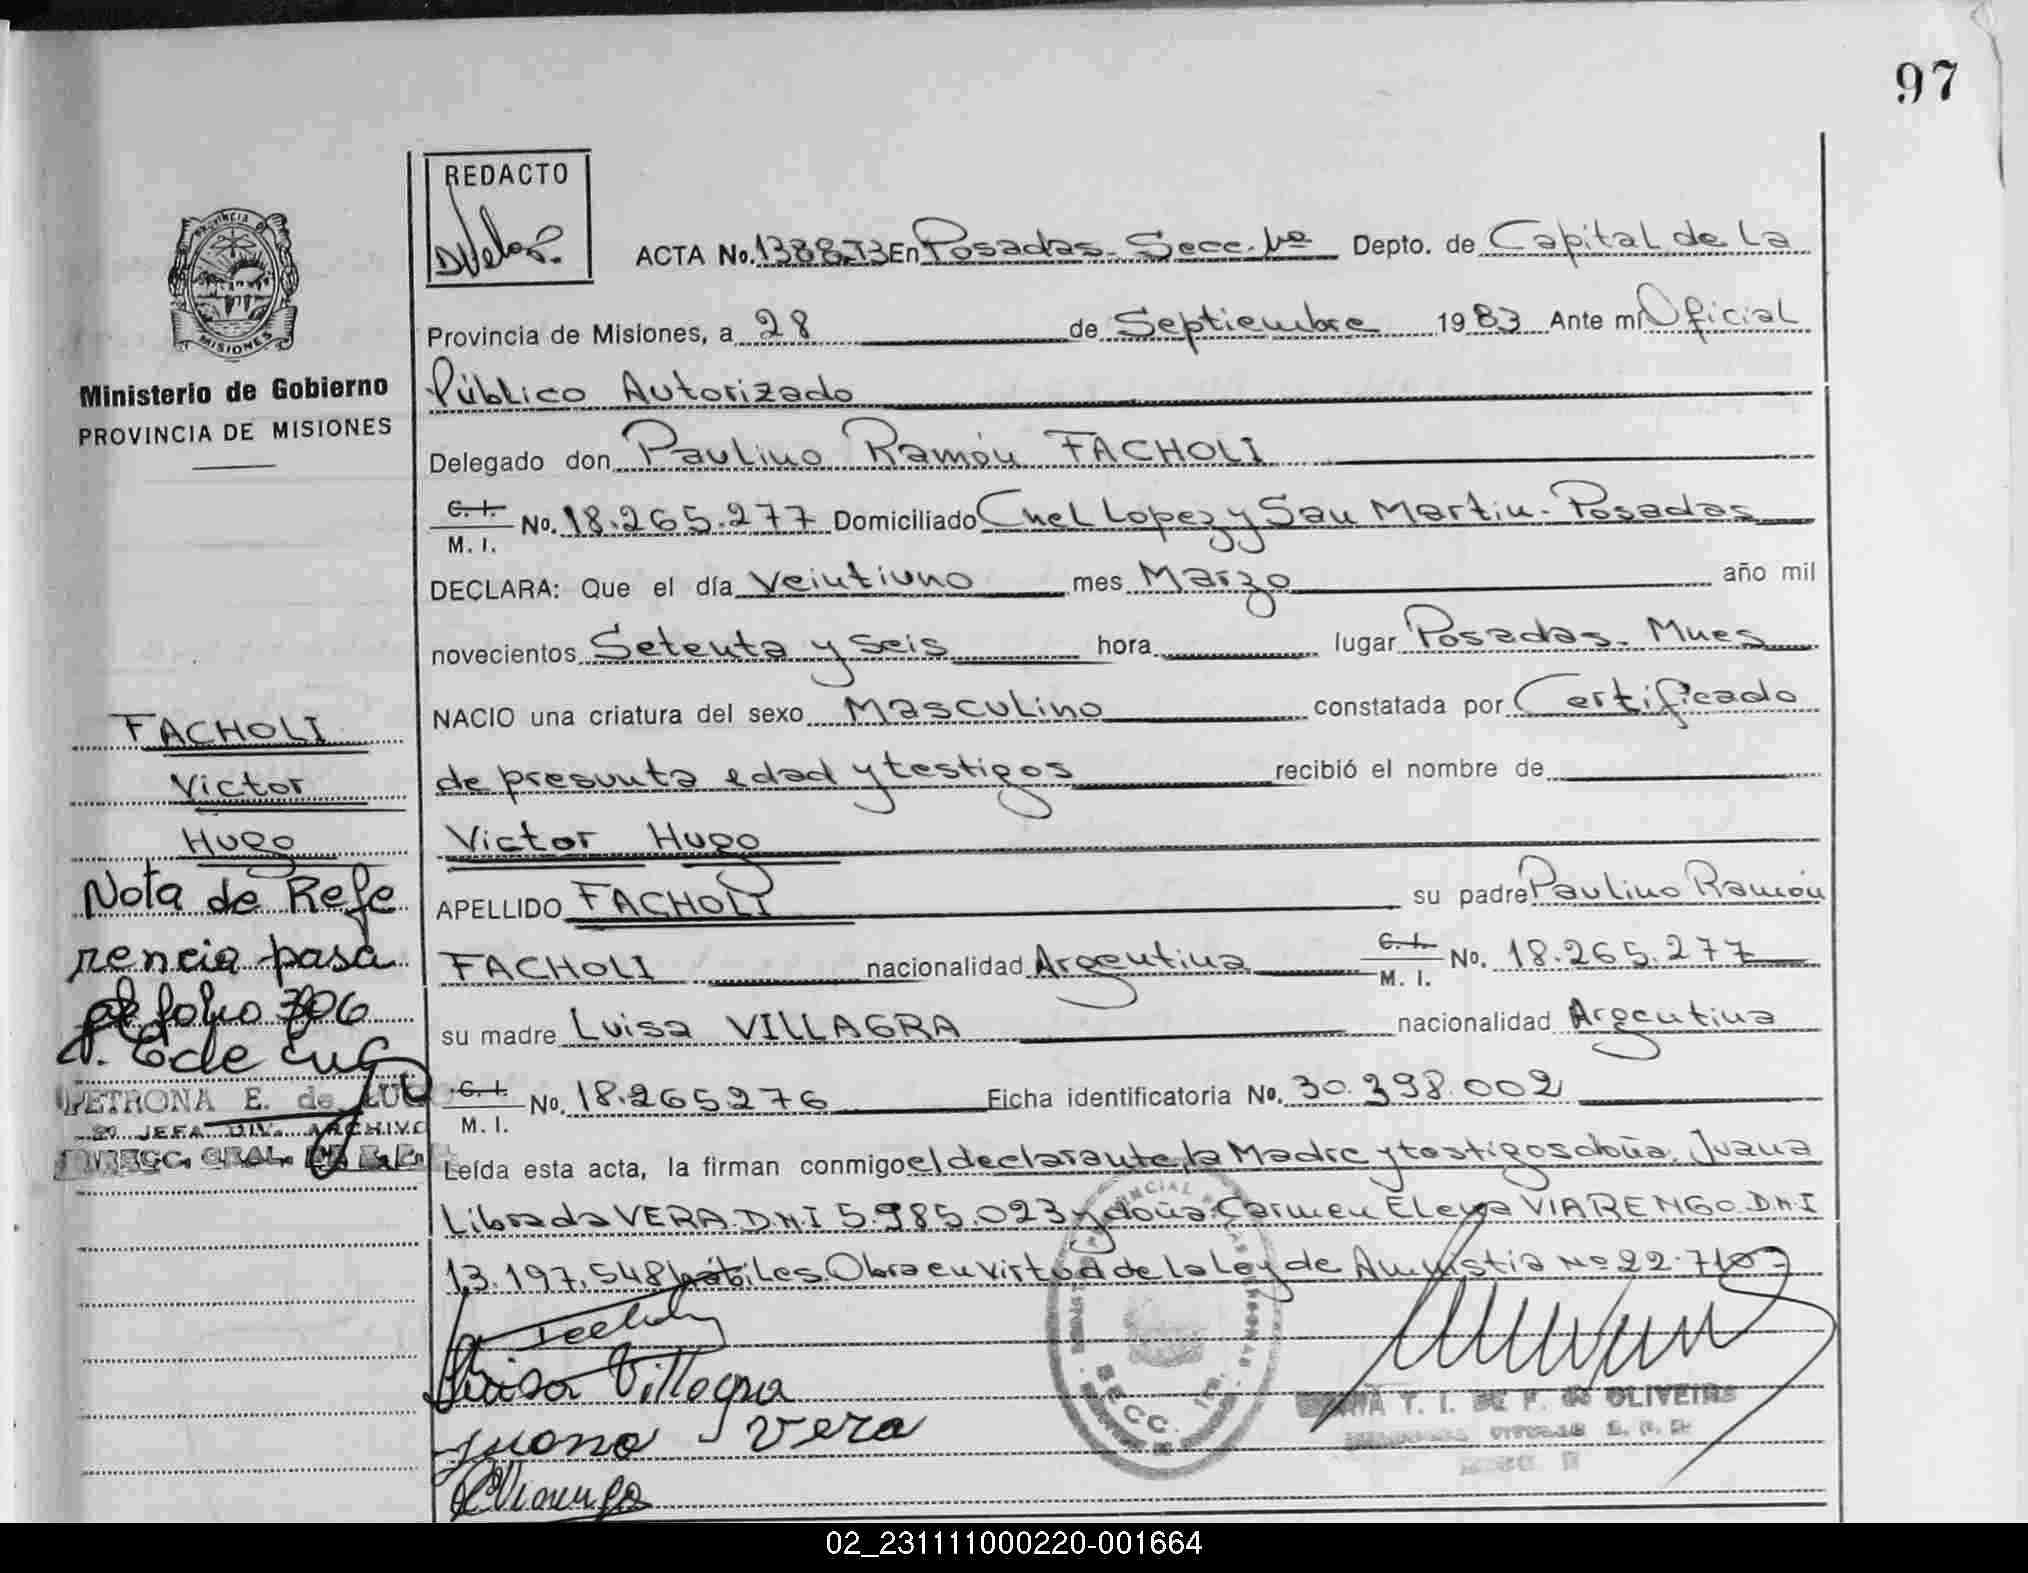 97
REDACTO
PROVINCIA DE
MISIONES
Ministerio de Gobierno
PROVINCIA DE MISIONES
ACTA No. En Posadas. Secc. 1ª Depto. de Capital de La
Provincia de Misiones, a 28 de Septiembre 1983 Ante mí Oficial
Público Autorizado
Delegado don Paulino Ramón FACHOLI
C. I. M. I. No. 18.265.277 Domiciliado Cnel Lopez y San Martin. Posadas
DECLARA: Que el día Veintiuno mes Marzo año mil
novecientos Setenta y seis hora lugar Posadas. Mnes
NACIO una criatura del sexo Masculino constatada por Certificado
de presunta edad y testigos recibió el nombre de
Victor Hugo
APELLIDO FACHOLI su padre Paulino Ramón
FACHOLI nacionalidad Argentina C. I. M. I. No. 18.265.277
su madre Luisa VILLAGRA nacionalidad Argentina
C. I. M. I. No. 18.265276 Ficha identificatoria No. 30.398.002
Leída esta acta, la firman conmigo el declarante, la Madre y testigos doña. Juana
Librada VERA D.N.I 5.985.023 y doña Carmen Elena VIARENGO D.N.I
13.197.548 hábiles. Obra en virtud de la Ley de Amnistia Nº 22.710
Luisa Villagra
Juana Vera
FACHOLI
Victor
Hugo
Nota de Refe
rencia pasa
folio 706
PETRONA E. de LUGO
JEFA DIV. ARCHIVO
DIRECC. GRAL.
SECC. 1ra.
T. I. DE F. de OLIVEIRA
02_231111000220-001664